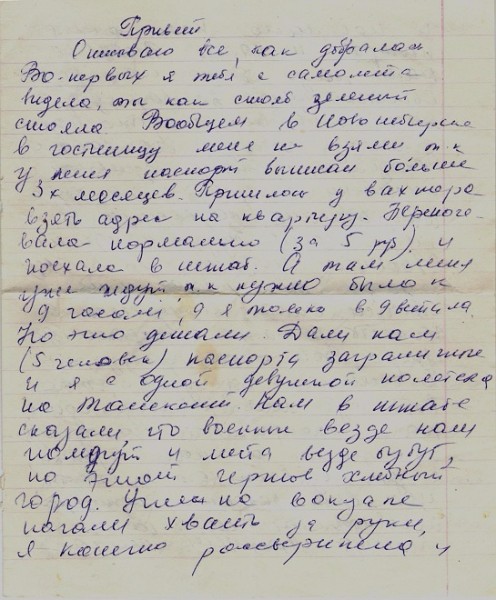 Привет
Описываю все, как добралась.
Во-первых я тебя с самолета
видела, ты как столб зеленый
стояла. Вообщем в Новосибирске
в гостиницу меня не взяли т.к
у меня паспорт выписан больше
3х месяцев. Пришлось у вахтера
взять адрес на квартиру. Переноче-
вала нормально (за 5 руб), и
поехала в штаб. А там меня
уже ждут, т.к нужно было к
9 часам, а я только в 9 встала
Но это детали. Дали нам
(5 человек) паспорта заграничные
и я с одной девушкой полетела
на Ташкент. Нам в штабе
сказали, что военные везде нам
помогут и места везде будут,
но этот чертов хлебный
город. Уже на вокзале
начали хватать за руки,
я конечно рассвирепела, и